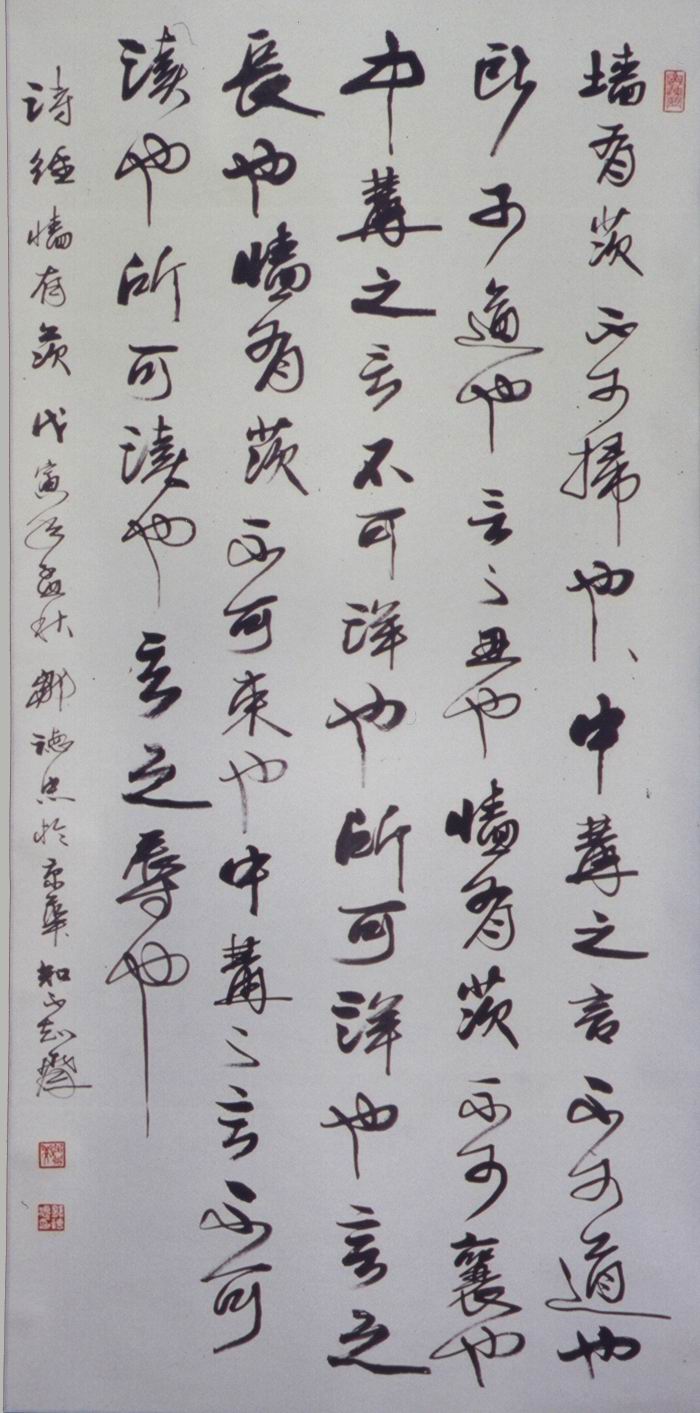 墙有茨不可掃也中冓之言不可道也
所可道也言之丑也墙有茨不可襄也
中冓之言不可详也所可详也言之
長也墙有茨不可束也中冓之言不可
读也所可读也言之辱也
诗经墙有茨戊寅年孟秋德忠於京華